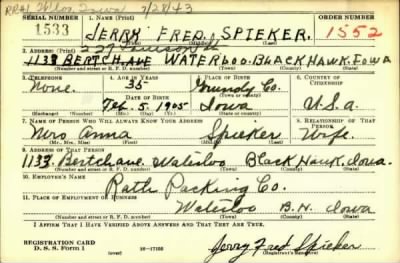 Wloo, Iowa 7/28/43
SERIAL NUMBER 1. NAME (Print) ORDER NUMBER
1533 JERRY FRED SPIEKER. 1552
(First) (Middle) (Last)
2. ADDRESS (Print)
1133 BERTCH AVE WATERLOO. BLACK HAWK. IOWA
(Number and street or R. F. D. number) (Town) (County) (State)
3. TELEPHONE 4. AGE IN YEARS 5. PLACE OF BIRTH 6. COUNTRY OF CITIZENSHIP
None. 35 Grundy Co.
DATE OF BIRTH (Town or county)
Feb. 5. 1905 Iowa U.S.a.
(Exchange) (Number) (Mo.) (Day) (Yr.) (State or country)
7. NAME OF PERSON WHO WILL ALWAYS KNOW YOUR ADDRESS 8. RELATIONSHIP OF THAT PERSON
Mrs Anna Spieker Wife.
(Mr., Mrs., Miss) (First) (Middle) (Last)
9. ADDRESS OF THAT PERSON
1133 Bertch ave. Waterloo Black Hawk. Iowa.
(Number and street or R. F. D. number) (Town) (County) (State)
10. EMPLOYER'S NAME
Rath Packing Co.
11. PLACE OF EMPLOYMENT OR BUSINESS
Waterloo B.H. Iowa
(Number and street or R. F. D. number) (Town) (County) (State)
I AFFIRM THAT I HAVE VERIFIED ABOVE ANSWERS AND THAT THEY ARE TRUE.
REGISTRATION CARD
D. S. S. Form 1 16-17105 Jerry Fred Spieker
(Registrant's signature)